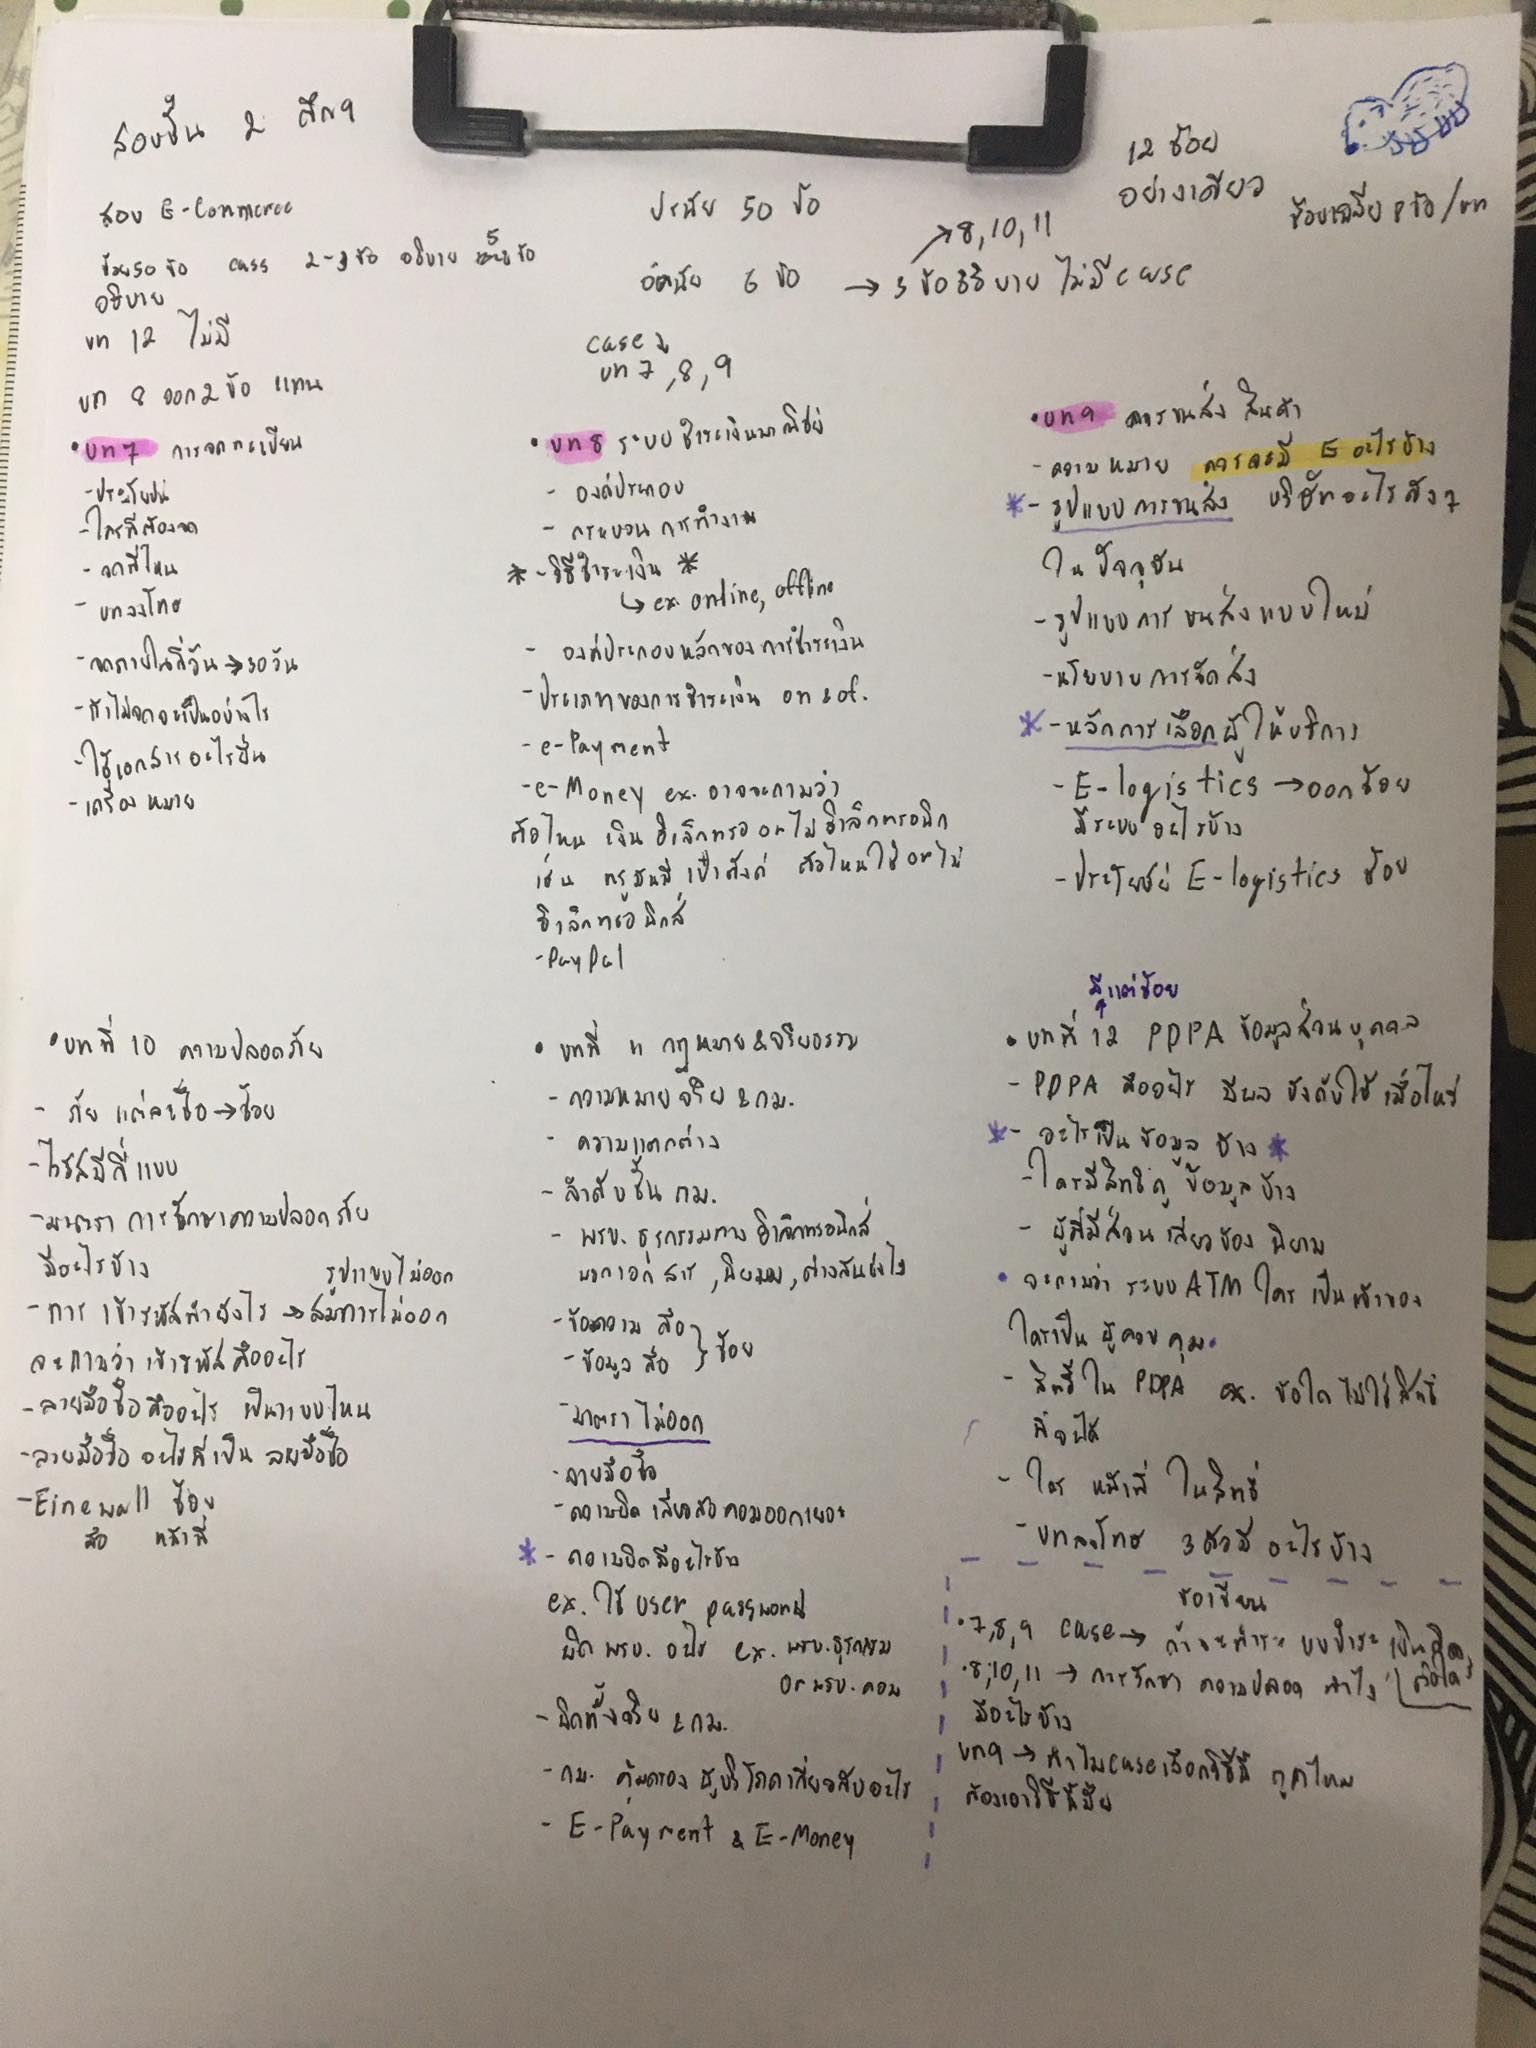 สอบชั้น 2 ตึก 9
สอบ E-Commerce
ช้อย 50 ข้อ case 2-3 ข้อ อธิบาย 5 ข้อ
อธิบาย
บท 12 ไม่มี
บท 8 ออก 2 ข้อ แทน
ปรนัย 50 ข้อ
→ 8, 10, 11
อัตนัย 6 ข้อ → 3 ข้ออธิบาย ไม่มี case
12 ช้อย
อย่างเดียว
ช้อยเฉลี่ย 8 ข้อ/บท
case
บท 7, 8, 9
• บท 7 การจดทะเบียน
- ประโยชน์
- ใครที่ต้องจด
- จดที่ไหน
- บทลงโทษ
- จดภายในกี่วัน → 30 วัน
- ถ้าไม่จดจะเป็นอย่างไร
- ใช้เอกสารอะไรยื่น
- เครื่องหมาย
• บท 8 ระบบชำระเงินพาณิชย์
- องค์ประกอบ
- กระบวนการทำงาน
* - วิธีชำระเงิน *
↳ ex. online, offline
- องค์ประกอบหลักของการชำระเงิน
- ประเภทของการชำระเงิน on & of.
- e-Payment
- e-Money ex. อาจจะถามว่า
ตัวไหน เงินอิเล็กทรอ or ไม่อิเล็กทรอนิก
เช่น ทรูมันนี่ เป๋าตังค์ ตัวไหนใช่ or ไม่
อิเล็กทรอนิกส์
- PayPal
• บท 9 การขนส่งสินค้า
- ความหมาย ควรจะมี E อะไรบ้าง
* - รูปแบบการขนส่ง บริษัทอะไรดังๆ
ในปัจจุบัน
- รูปแบบการขนส่งแบบใหม่
- นโยบายการจัดส่ง
* - หลักการเลือกผู้ให้บริการ
- E-logistics → ออกช้อย
มีระบบอะไรบ้าง
- ประโยชน์ E-logistics ช้อย
• บทที่ 10 ความปลอดภัย
- ภัย แต่ละชื่อ → ช้อย
- ไวรัสมีกี่แบบ
- มาตรา การรักษาความปลอดภัย
มีอะไรบ้าง รูปแบบไม่ออก
- การเข้ารหัสทำยังไง → สมการไม่ออก
จะถามว่าเข้ารหัสคืออะไร
- ลายมือชื่อคืออะไร เป็นแบบไหน
- ลายมือชื่อ อะไรที่เป็น ลายมือชื่อ
- Firewall ช้อย
คือ หน้าที่
• บทที่ 11 กฎหมาย & จริยธรรม
- ความหมาย จริย & กม.
- ความแตกต่าง
- ลำดับชั้น กม.
- พรบ. ธุรกรรมทางอิเล็กทรอนิกส์
- ข้อความ คือ
- ข้อมูล คือ } ช้อย
- มาตรา ไม่ออก
- ลายมือชื่อ
- ความผิดเกี่ยวกับคอมออกเยอะ
* - ความผิดมีอะไรบ้าง
ex. ใช้ user password
ผิด พรบ. อะไร ex. พรบ. ธุรกรรม
or พรบ. คอม
- ผิดทั้งจริย & กม.
- กม. คุ้มครอง ผู้บริโภคเกี่ยวกับอะไร
- E-Payment & E-Money
มีแต่ช้อย
• บทที่ 12 PDPA ข้อมูลส่วนบุคคล
- PDPA คืออะไร มีผลบังคับใช้เมื่อไหร่
* - อะไรเป็นข้อมูลบ้าง *
- ใครมีสิทธิดูข้อมูลบ้าง
- ผู้ที่มีส่วนเกี่ยวข้อง นิยาม
• จะถามว่า ระบบ ATM ใครเป็นเจ้าของ
ใครเป็นผู้ควบคุม
- สิทธิใน PDPA ex. ข้อใดไม่ใช่สิทธิ
ที่จะได้
- ใคร หน้าที่ ในสิทธิ
- บทลงโทษ 3 ตัวมีอะไรบ้าง
ข้อเขียน
• 7, 8, 9 case → ถ้าจะทำระบบชำระเงิน
• 8, 10, 11 → การรักษาความปลอด ทำไง
มีอะไรบ้าง
บท 9 → ทำไม case เลือกวิธีนี้ ถูกไหม
ต้องเอาวิธีนี้มั้ย